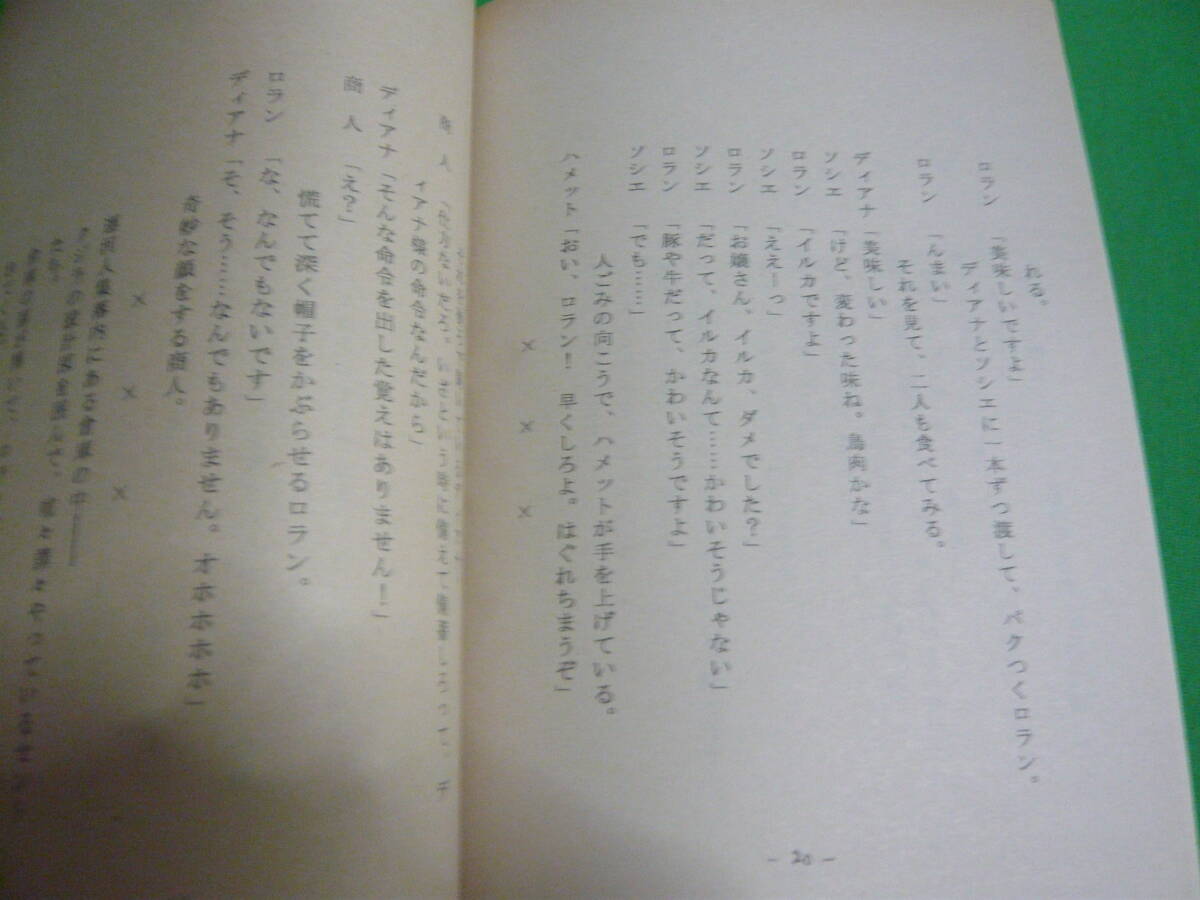 れる。
ロラン「美味しいですよ」
ディアナとソシエに一本ずつ渡して、パクつくロラン。
ロラン「んまい」
それを見て、二人も食べてみる。
ディアナ「美味しい」
ソシエ「けど、変わった味ね。鳥肉かな」
ロラン「イルカですよ」
ソシエ「ええーっ」
ロラン「お嬢さん、イルカ、ダメでした?」
ソシエ「だって、イルカなんて……かわいそうじゃない」
ロラン「豚や牛だって、かわいそうですよ」
ソシエ「でも……」
人ごみの向こうで、ハメットが手を上げている。
ハメット「おい、ロラン! 早くしろよ。はぐれちまうぞ」
× × ×
- 20 -
商人「仕方ないだろ。いざという時に備えて備蓄しろって、デ
ィアナ様の命令なんだから」
ディアナ「そんな命令を出した覚えはありません!」
商人「え?」
慌てて深く帽子をかぶらせるロラン。
ロラン「な、なんでもないです」
ディアナ「そ、そう……なんでもありません。オホホホホ」
奇妙な顔をする商人。
× × ×
運河人集落内にある倉庫の中――